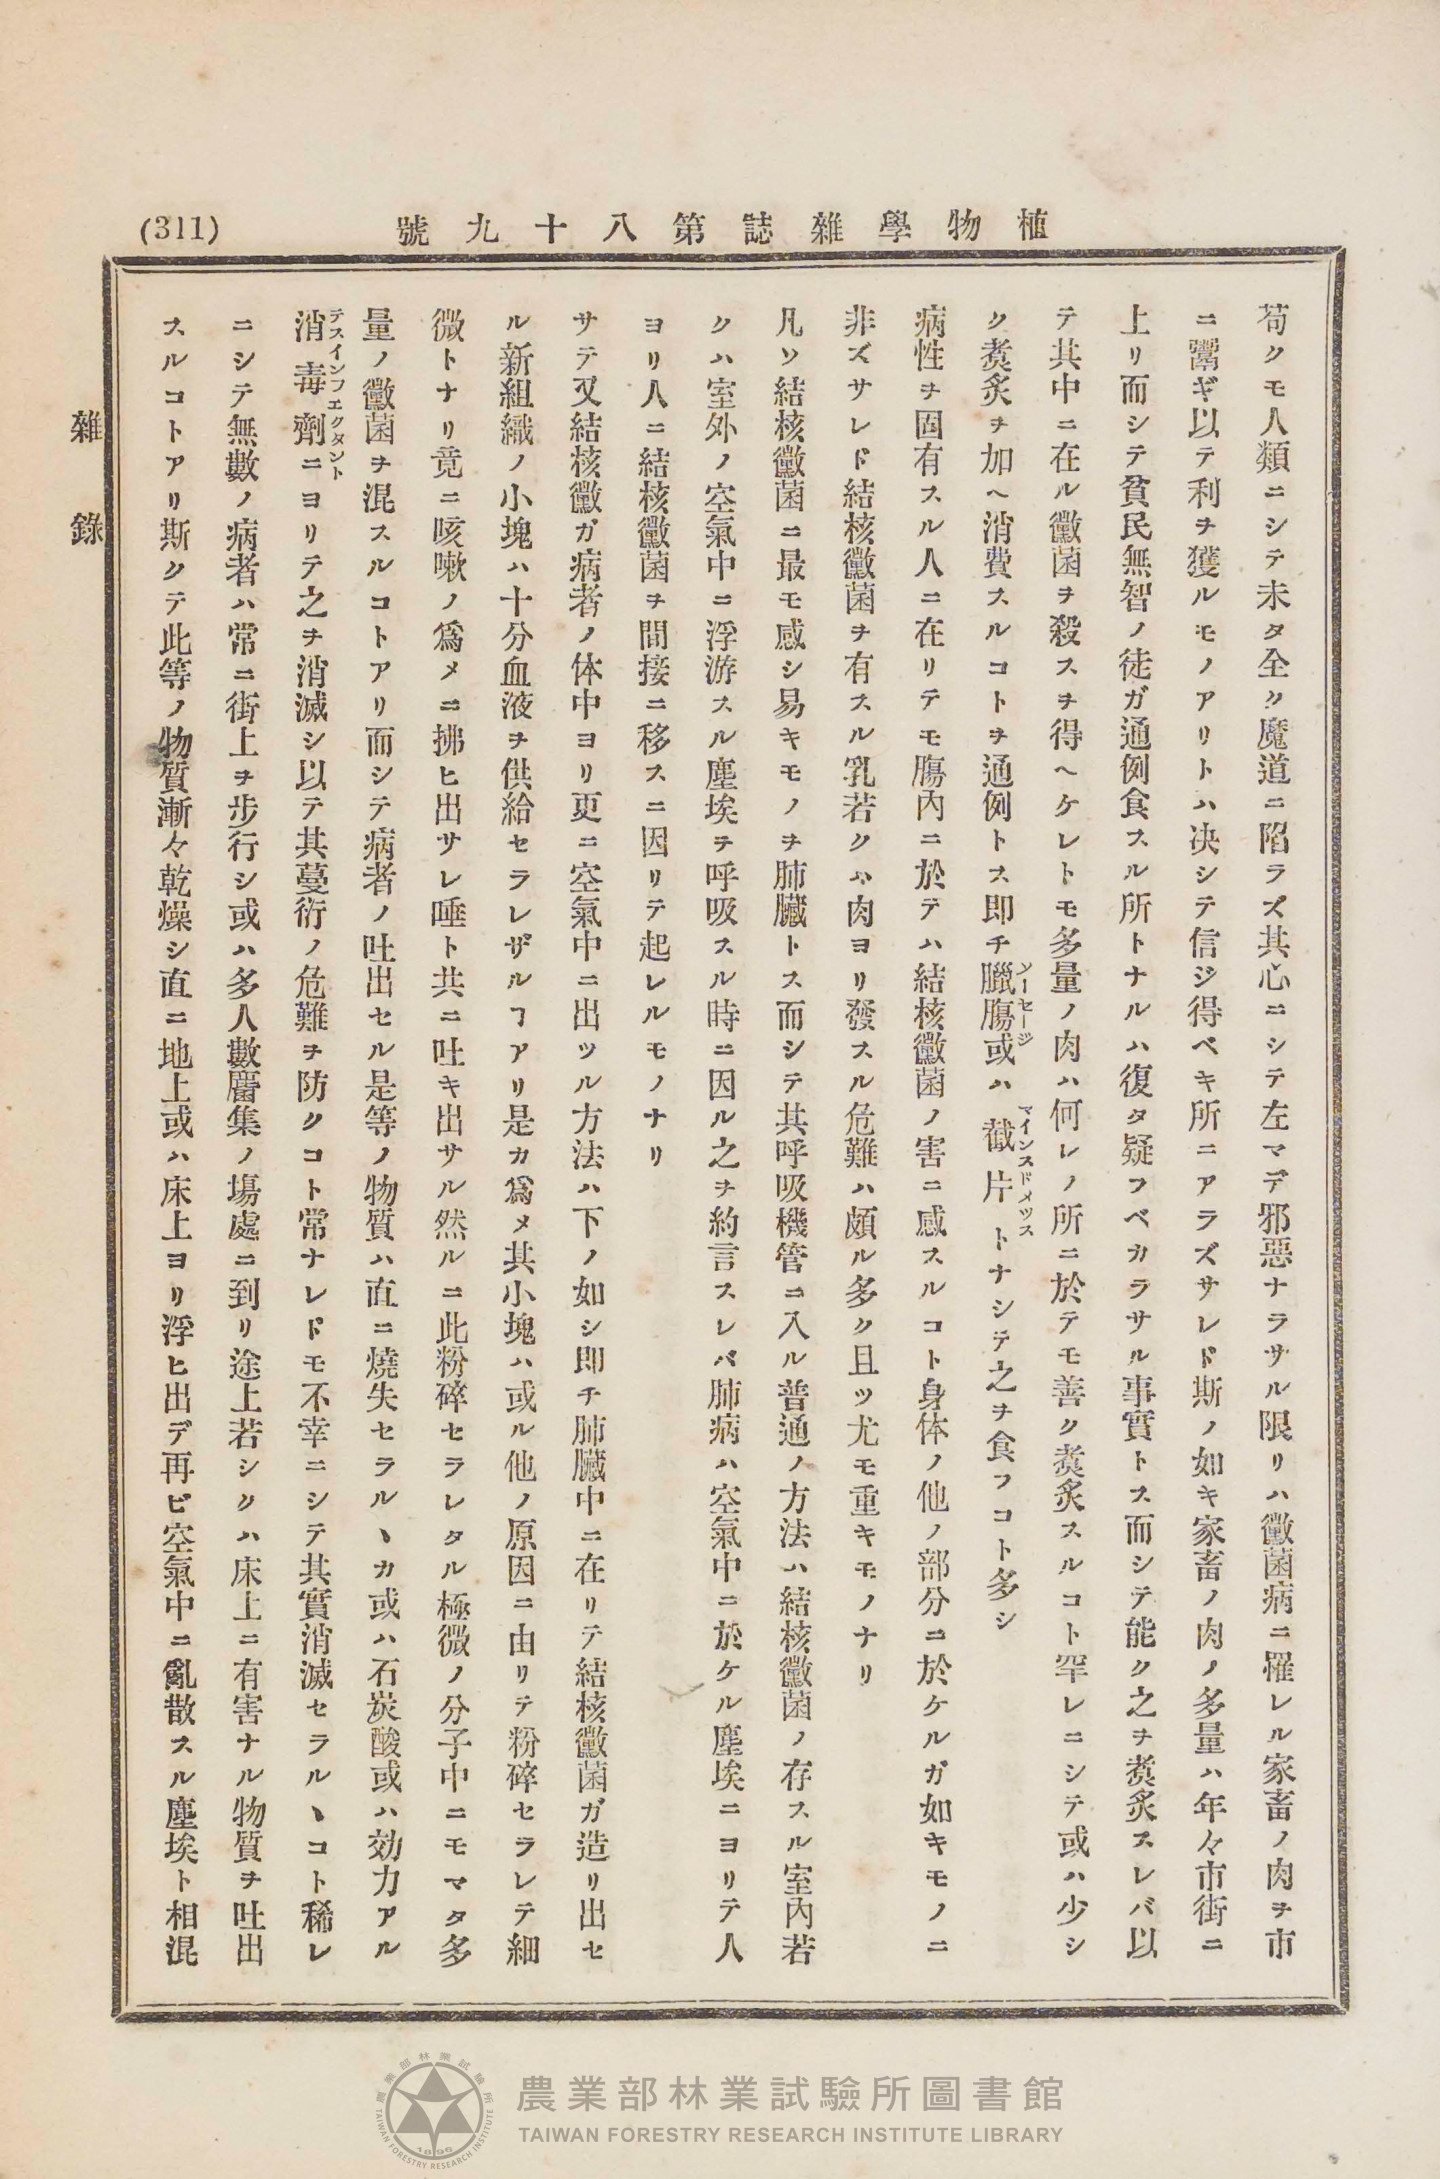 植物學雜誌第八十九號
(311)
苟クモ人類ニシテ未タ全ク魔道ニ陷ラズ其心ニシテ左マデ邪惡ナラサル限リハ黴菌病ニ罹レル家畜ノ肉ヲ市
ニ鬻ギ以テ利ヲ獲ルモノアリトハ决シテ信ジ得ベキ所ニアラズサレド斯ノ如キ家畜ノ肉ノ多量ハ年々市街ニ
上リ而シテ貧民無智ノ徒ガ通例食スル所トナルハ復タ疑フベカラサル事實トス而シテ能ク之ヲ煑炙スレバ以
テ其中ニ在ル黴菌ヲ殺スヲ得ヘケレトモ多量ノ肉ハ何レノ所ニ於テモ善ク煑炙スルコト罕レニシテ或ハ少シ
ク煑炙ヲ加ヘ消費スルコトヲ通例トス即チ臘膓或ハ截片トナシテ之ヲ食フコト多シ
ソーセージ
マインスドメツス
病性ヲ固有スル人ニ在リテモ膓內ニ於テハ結核黴菌ノ害ニ感スルコト身体ノ他ノ部分ニ於ケルガ如キモノニ
非ズサレド結核黴菌ヲ有スル乳若クハ肉ヨリ發スル危難ハ頗ル多ク且ツ尤モ重キモノナリ
凡ソ結核黴菌ニ最モ感シ易キモノヲ肺臟トス而シテ其呼吸機管ニ入ル普通ノ方法ハ結核黴菌ノ存スル室內若
クハ室外ノ空氣中ニ浮游スル塵埃ヲ呼吸スル時ニ因ル之ヲ約言スレバ肺病ハ空氣中ニ於ケル塵埃ニヨリテ人
ヨリ人ニ結核黴菌ヲ間接ニ移スニ因リテ起レルモノナリ
サテ又結核黴ガ病者ノ体中ヨリ更ニ空氣中ニ出ツル方法ハ下ノ如シ即チ肺臟中ニ在リテ結核黴菌ガ造リ出セ
ル新組織ノ小塊ハ十分血液ヲ供給セラレザルヿアリ是カ爲メ其小塊ハ或ル他ノ原因ニ由リテ粉碎セラレテ細
微トナリ竟ニ咳嗽ノ爲メニ拂ヒ出サレ唾ト共ニ吐キ出サル然ルニ此粉碎セラレタル極微ノ分子中ニモマタ多
量ノ黴菌ヲ混スルコトアリ而シテ病者ノ吐出セル是等ノ物質ハ直ニ燒失セラルヽカ或ハ石炭酸或ハ効力アル
テスインフエクタント
消毒劑ニヨリテ之ヲ消滅シ以テ其蔓衍ノ危難ヲ防クコト常ナレドモ不幸ニシテ其實消滅セラルヽコト稀レ
ニシテ無數ノ病者ハ常ニ街上ヲ步行シ或ハ多人數麕集ノ塲處ニ到リ途上若シクハ床上ニ有害ナル物質ヲ吐出
スルコトアリ斯クテ此等ノ物質漸々乾燥シ直ニ地上或ハ床上ヨリ浮ヒ出デ再ビ空氣中ニ亂散スル塵埃ト相混
雜錄
農業部林業試驗所
TAIWAN FORESTRY RESEARCH INSTITUTE
1896
農業部林業試驗所圖書館
TAIWAN FORESTRY RESEARCH INSTITUTE LIBRARY